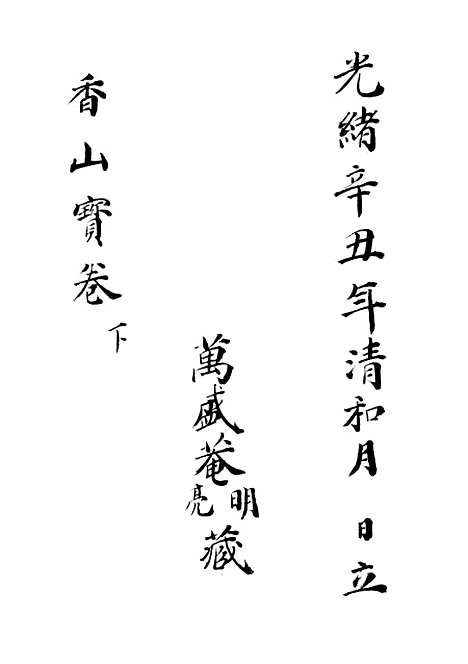 光緒辛丑年清和月 日立
萬盛菴明亮藏
香山寶卷下